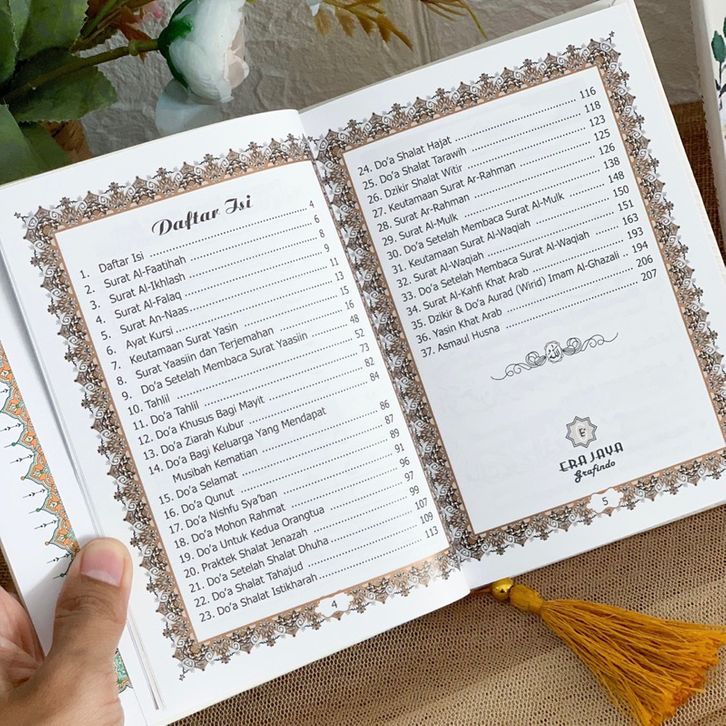 Daftar Isi
1. Daftar Isi ........ 4
2. Surat Al-Faatihah ........ 6
3. Surat Al-Ikhlash ........ 8
4. Surat Al-Falaq ........ 9
5. Surat An-Naas ........ 11
6. Ayat Kursi ........ 13
7. Keutamaan Surat Yasin ........ 15
8. Surat Yaasiin dan Terjemahan ........ 16
9. Do'a Setelah Membaca Surat Yaasiin ........ 48
10. Tahlil ........ 52
11. Do'a Tahlil ........ 73
12. Do'a Khusus Bagi Mayit ........ 82
13. Do'a Ziarah Kubur ........ 84
14. Do'a Bagi Keluarga Yang Mendapat
Musibah Kematian ........ 86
15. Do'a Selamat ........ 87
16. Do'a Qunut ........ 89
17. Do'a Nishfu Sya'ban ........ 91
18. Do'a Mohon Rahmat ........ 96
19. Do'a Untuk Kedua Orangtua ........ 97
20. Praktek Shalat Jenazah ........ 99
21. Do'a Setelah Shalat Dhuha ........ 107
22. Do'a Shalat Tahajud ........ 109
23. Do'a Shalat Istikharah ........ 113
4
24. Do'a Shalat Hajat ........ 116
25. Do'a Shalat Tarawih ........ 118
26. Dzikir Shalat Witir ........ 123
27. Keutamaan Surat Ar-Rahman ........ 125
28. Surat Ar-Rahman ........ 126
29. Surat Al-Mulk ........ 138
30. Do'a Setelah Membaca Surat Al-Mulk ........ 148
31. Keutamaan Surat Al-Waqiah ........ 150
32. Surat Al-Waqiah ........ 151
33. Do'a Setelah Membaca Surat Al-Waqiah ........ 163
34. Surat Al-Kahfi Khat Arab ........ 193
35. Dzikir & Do'a Aurad (Wirid) Imam Al-Ghazali .. 194
36. Yasin Khat Arab ........ 206
37. Asmaul Husna ........ 207
الله
E
ERA JAYA
Grafindo
5